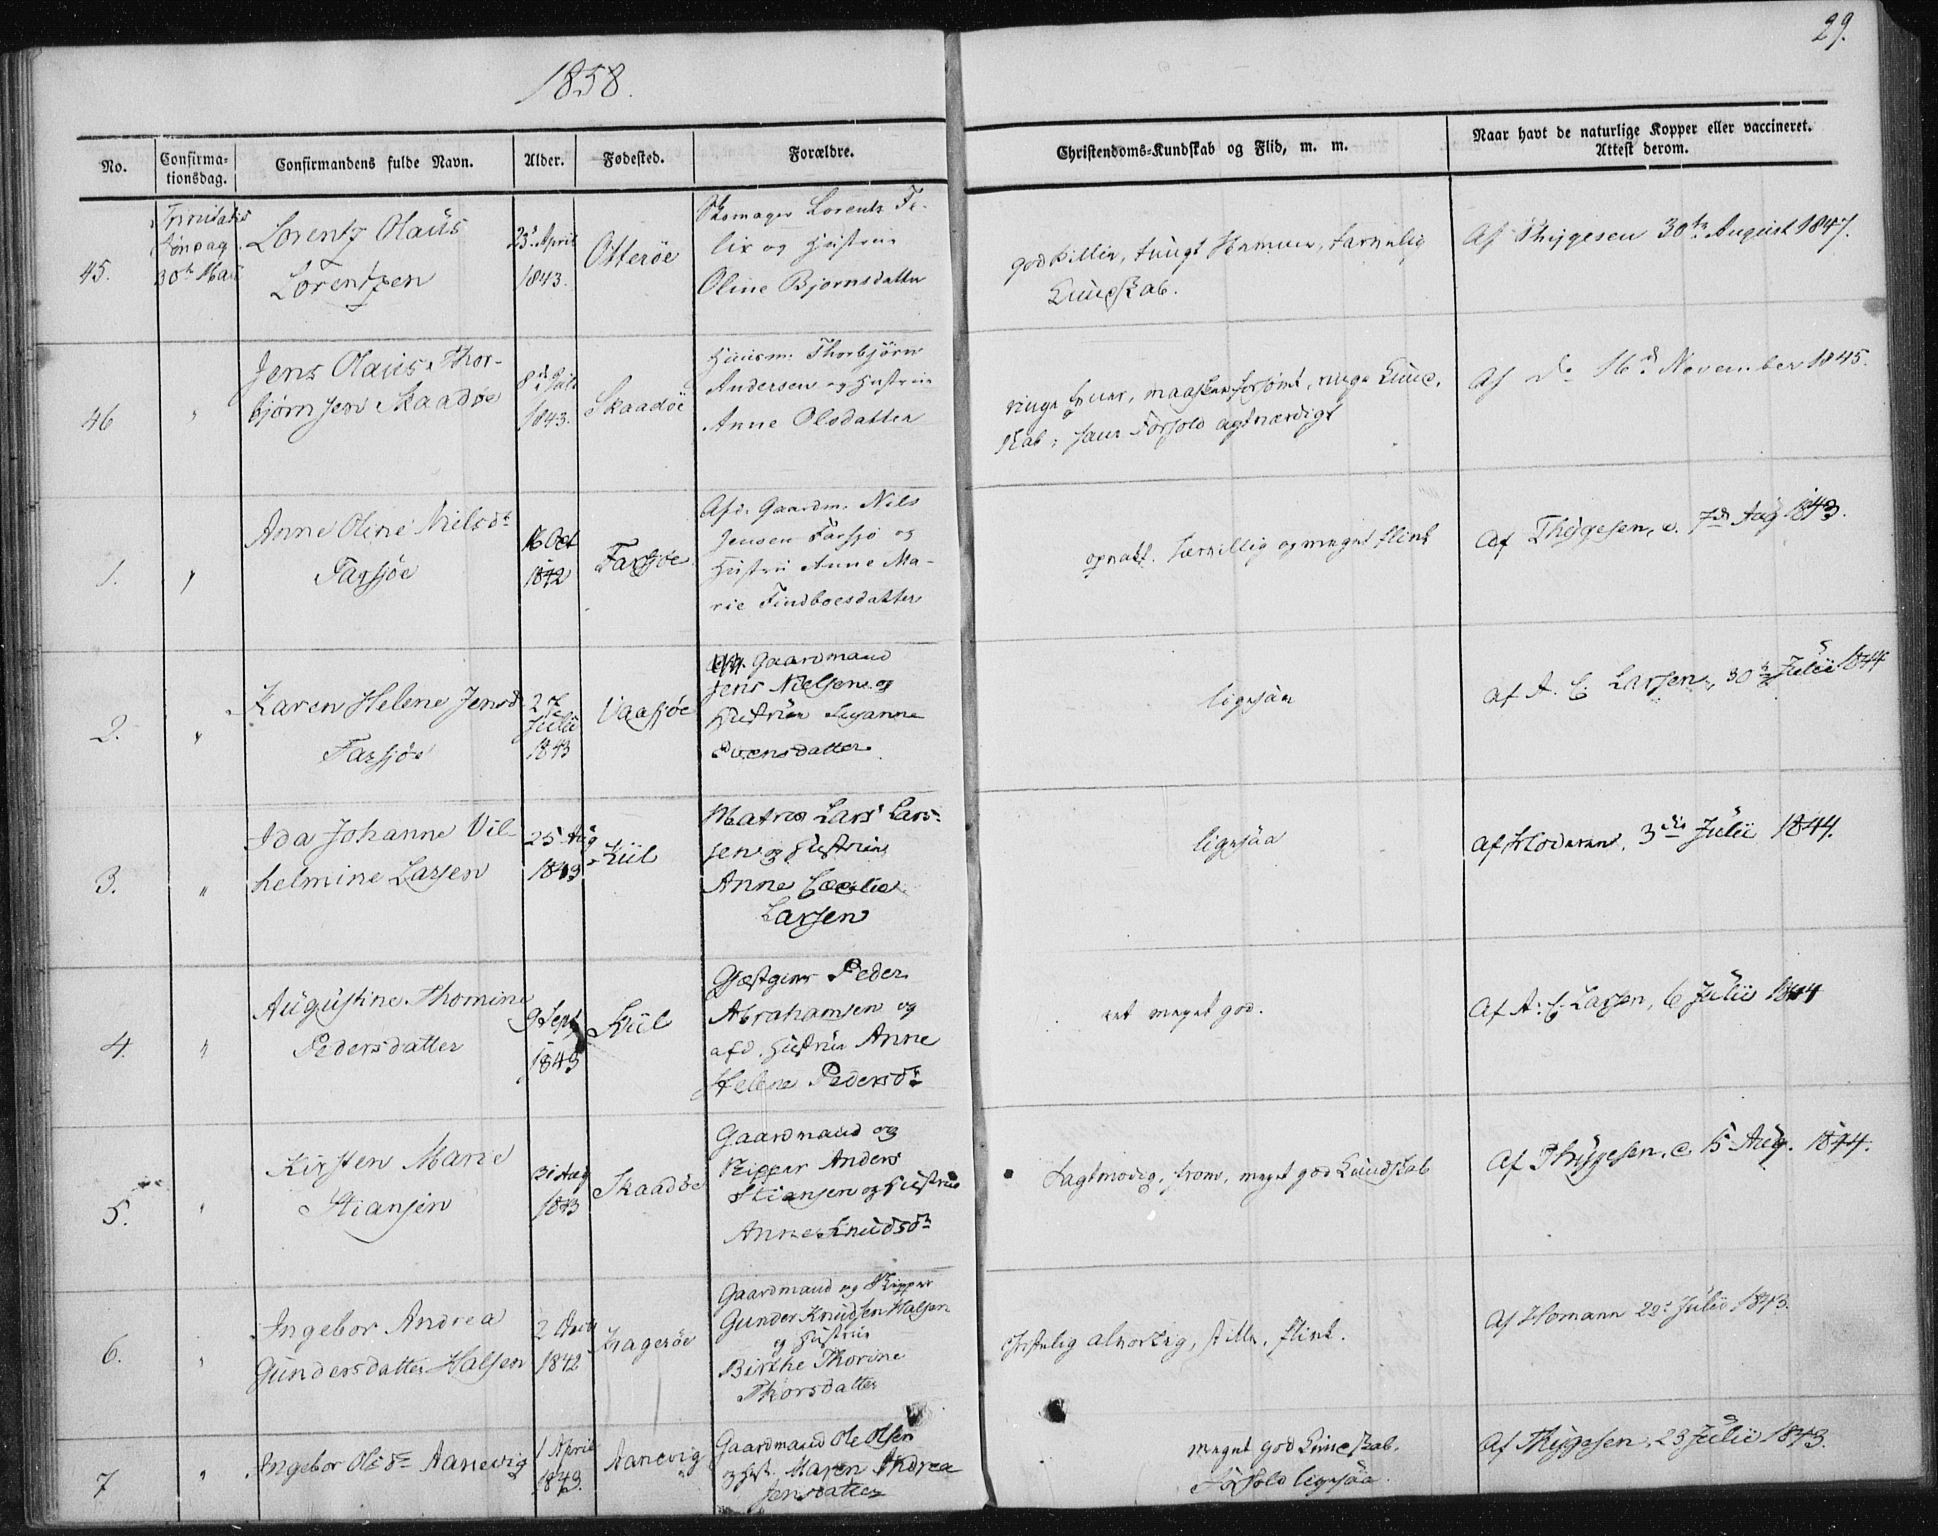 1858.
29.
No.
Confirma-
tionsdag.
Confirmandens fulde Navn.
Alder.
Fødested.
Forældre.
Christendoms-Kundskab og Flid, m. m.
Naar havt de naturlige Kopper eller vaccineret.
Attest derom.
45.
Trinitatis
Søndag
30te Mai
Lorentz Olaüs
Lorentzen
23de April
1843.
Otterøe
Skomager Lorents Fe-
lix og Hustrue
Oline Bjørnsdatter
god Villie, tungt Nemme, tarvelig
Kundskab.
Af Thygesen 30te August 1847.
46
"
Jens Olaüs Thor-
bjørnsen Skaadøe
8de Juli
1843.
Skaadøe
Huusm. Thorbjørn
Andersen og Hustrue
Anne Olsdatter
ringe Evner, maaskee forsømt, ringe Kund-
skab; hans Forhold agtværdigt
Af do 16d November 1845.
1.
"
Anne Oline Nielsdr
Farsjøe
16 Oct
1842
Farsjøe
Afd. Gaardm. Nils
Jensen Farsjø og
Hustru Anne Ma-
rie Findboesdatter
opvakt, lærvillig og meget flink
Af Thygesen, d. 7de Aug 1843.
2.
"
Karen Helene Jensd
Farsjøe
2de
Julii
1843
Vaasjøe
Gaardmand
Jens Nielsen og
Hustrue Susanne
Svensdatter
ligesaa
af A. C. Larsen, 30te Julii 1844
3.
"
Ida Johanne Vil-
helmine Larsen
25 Aug
1843
Kiil
Matros Lars Lars-
sen og Hustrue
Anne Cecilie
Larsen
ligesaa
Af Homann, 3die Julii 1844.
4.
"
Augüstine Thomine
Pedersdatter
9 Sept
1843
Kiil
Gjæstgiver Peder
Abrahamsen og
afd. Hustrue Anne
Helene Pedersdr
ret meget god.
Af A. C. Larsen, 6 Julii 1844
5.
"
Kirsten Marie
Stiansen
31 Aug
1843
Skaadøe
Gaardmand og
Skipper Anders
Stiansen og Hustrue
Anne Knudsdr
Sagtmodig, from, meget god Kundskab
Af Thygesen, d 15 Aug. 1844.
6.
"
Ingebor Andrea
Gundersdatter Halsen
2
1842
Kragerøe
Gaardmand og Skipper
Gunder Knudsen Halsen
og Hustrue
Birthe Thorine
Thorsdatter
christelig alvorlig, stille, flink.
Af Homann 29de Julii 1843.
7
"
Ingebor Olsdr Aanevig
1 April
1843.
Aanevig
Gaardmand Ole Olsen
og Hust. Maren Andrea
Jensdatter
meget god Kundskab.
Forhold ligesaa.
Af Thygesen, 23 Julii 1843.